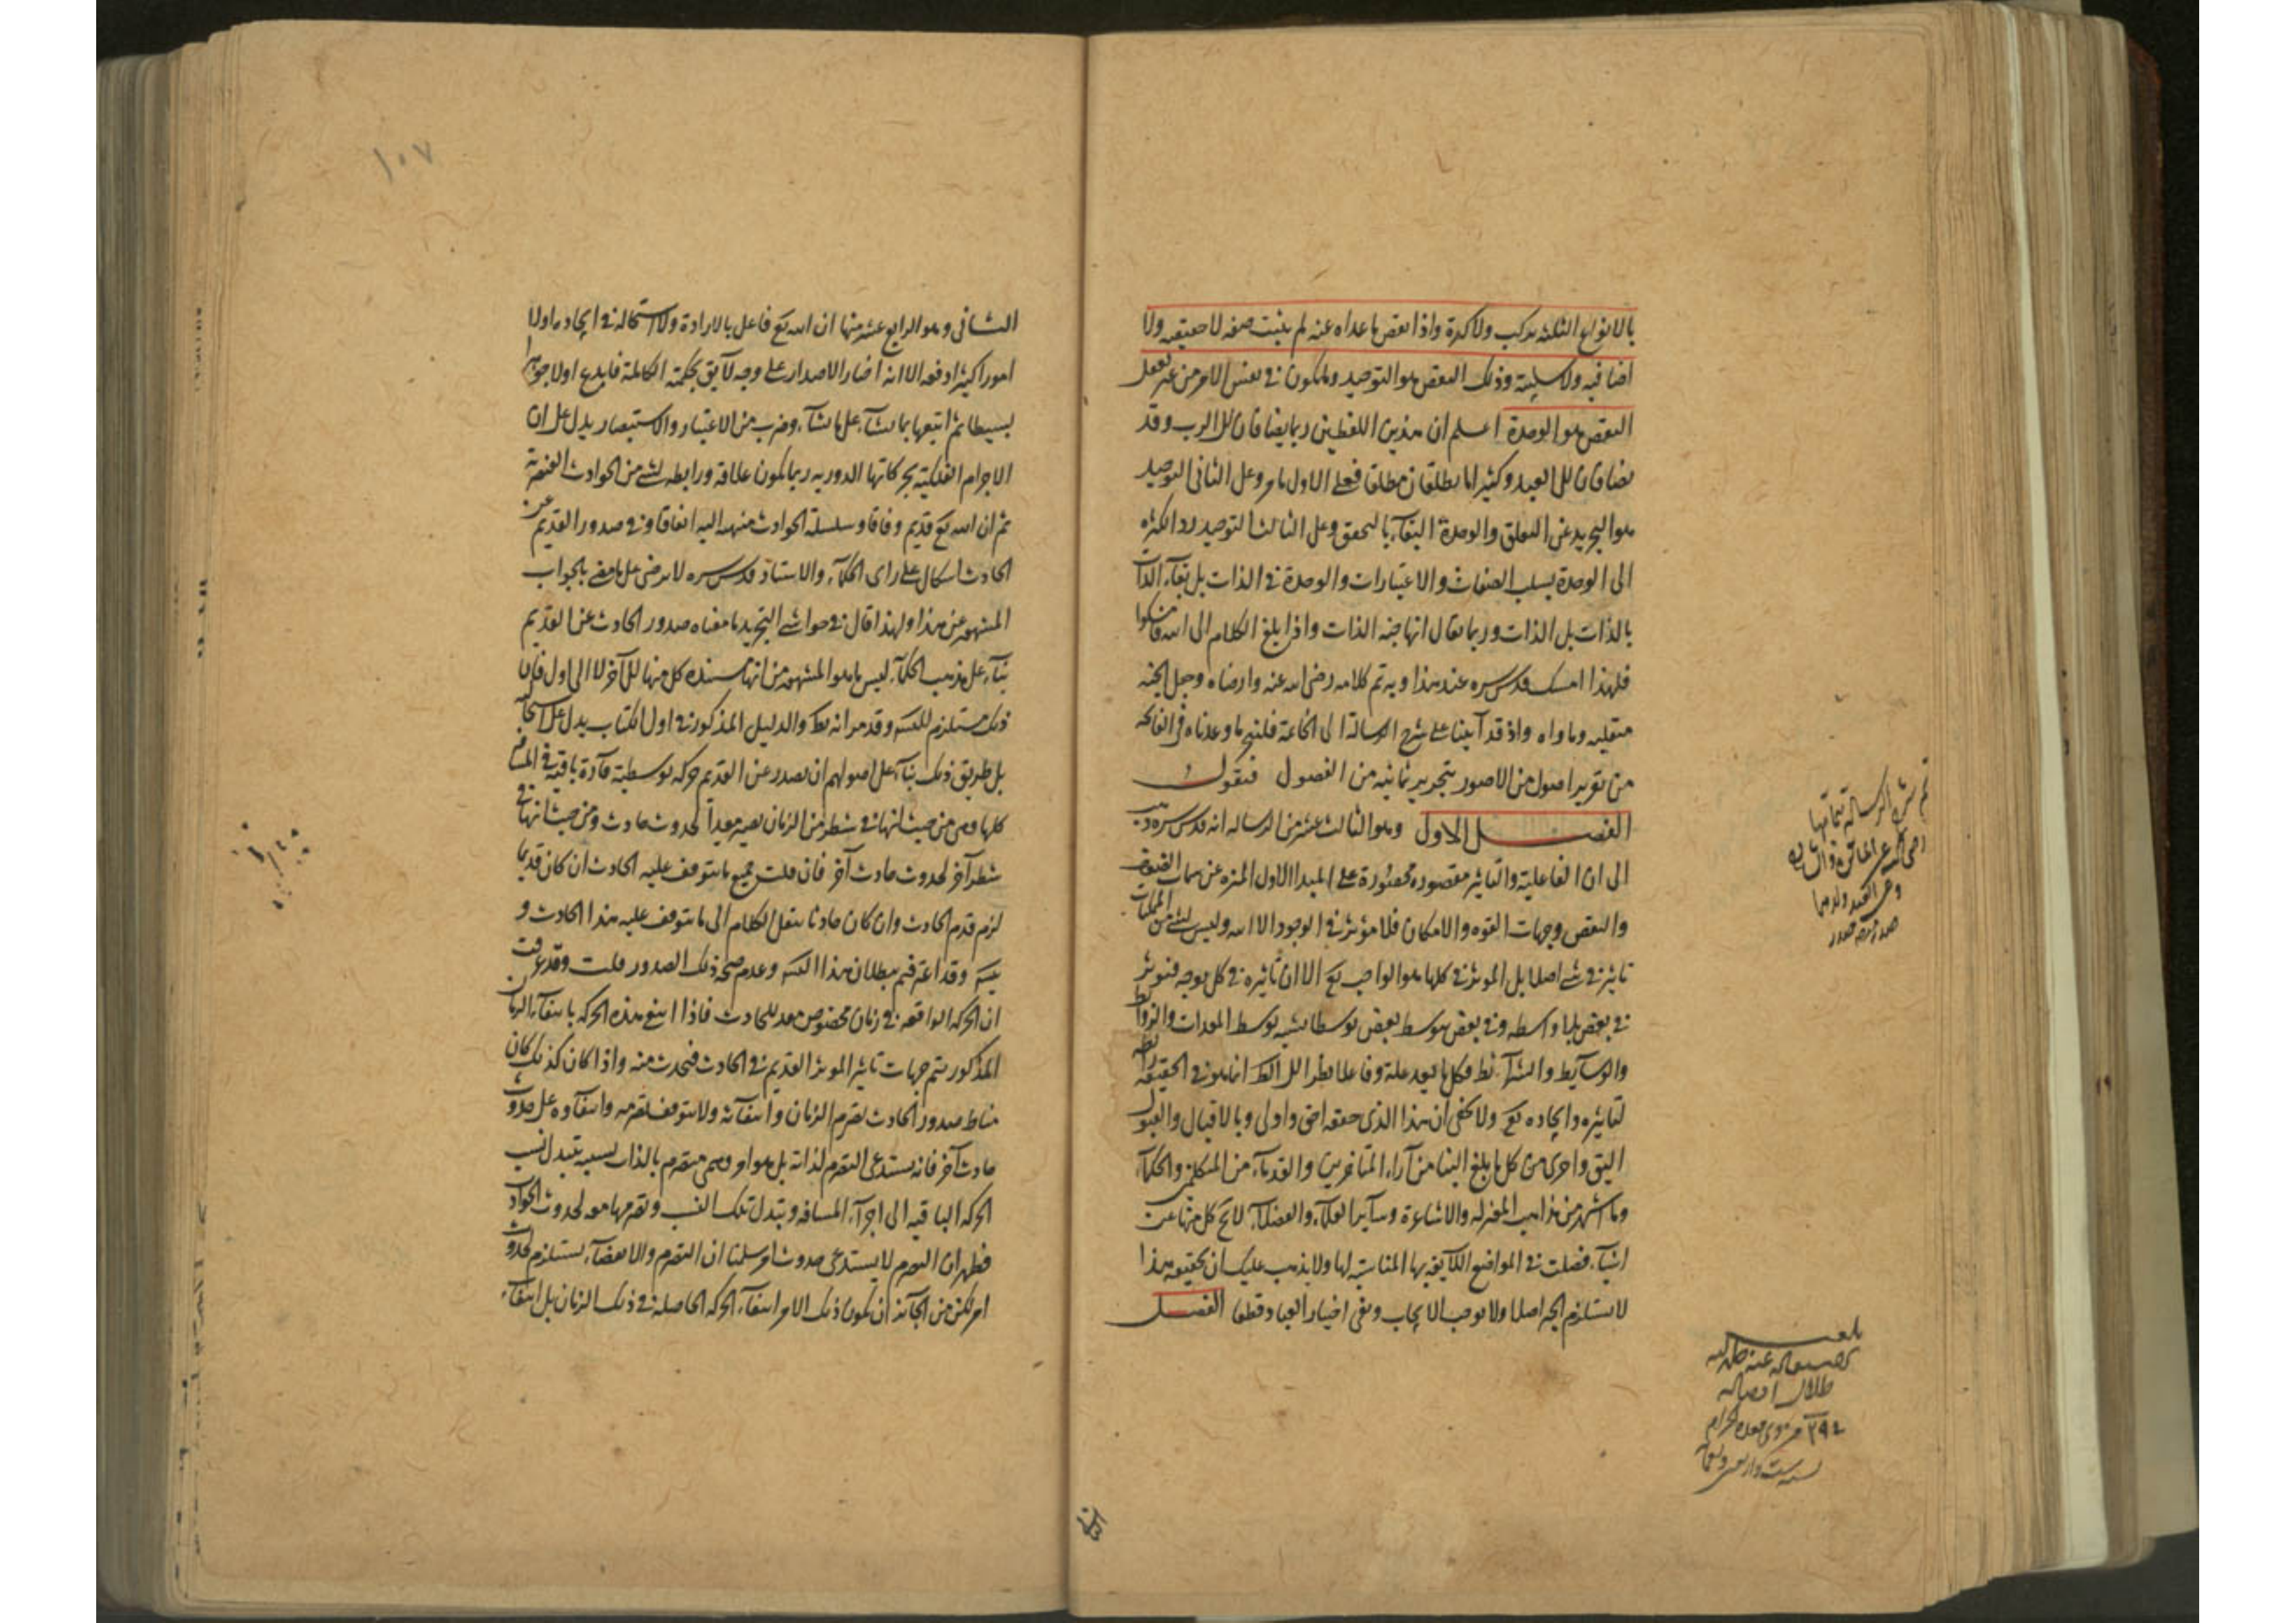 بالانواع الثلثة بتركب ولا كدرة واذا بعض ما عداه عنه لم يثبت صفة لا حقيقيه ولا
اضافيه ولا سلبية وذلك البعض هو التوحيد ويكون في نفس الامر من غير تعمل
البعض هو الوحدة اعلم ان هذين اللفظين ربما يضافان الى الرب وقد
يضافان الى العبد وكثيرا ما يطلقان مطلقا فعلى الاول ما مر وعلى الثاني التوحيد
هو التجريد عن التعلق والوحدة البقاء بالتحقق وعلى الثالث التوحيد رد الكثره
الى الوحدة بسلب الصفات والاعتبارات والوحدة في الذات بل بقاء الذات
بالذات بل الذات وربما يقال انها جنه الذات واذا بلغ الكلام الى الله فامسكوا
فلهذا امسك قدس سره عند هذا وبه تم كلامه رضى الله عنه وارضاه وجعل الجنه
متقلبه وماواه واذ قد اتينا على شرح الرسالة الى الخاتمة فلننجز ما وعدناه في الفاتحه
من تقرير اصول من الامور بتحرير ثمانيه من الفصول فنقول
الفصل الاول وهو الثالث عشر من الرساله انه قدس سره ذهب
الى ان الفاعلية والتاثير مقصوره محصورة على المبدا الاول المنزه عن سمات
والنقص وجهات القوه والامكان فلا مؤثر في الوجود الا الله وليس لشئ من الممكنات
تاثير في شئ اصلا بل المؤثر في كلها هو الواجب تع الا ان تاثيره في كل بوجه فيؤثر
في بعض بلا واسطه وفي بعض بتوسط بعض توسطا يشبه توسط المعدات والروابط
والوسايط والشرائط فكل ما يعد علة وفاعلا نظرا الى انما هو في الحقيقه
لتاثيره وايجاده تع ولا يخفى ان هذا الذى حققه احق واولى وبالاقبال والقبول
اليق واحرى من كل ما بلغ الينا من آراء المتاخرين والقدماء من المتكلمين والحكماء
وما اشتهر من مذاهب المعتزله والاشاعرة وساير العلماء والفضلاء لايح كل منها عن
اشياء فصلت في المواضع اللايقه بها المناسبة لها ولا يذهب عليك ان تحقيقه هذا
لا يستلزم الجبر اصلا ولا يوجب الايجاب ونفى اختيار العباد قطعا الفصل
تم شرح الرسالة بتمامها
بلغ
الثانى
١٠٧
الثانى وهو الرابع عشر منها ان الله تع فاعل بالارادة ولا استحاله في ايجاده اولا
امورا كثيرا دفعه الا انه اختار الاصدار على وجه لايق بحكمته الكاملة فابدع اولا جوهرا
بسيطا ثم اتبعها بما يشاء على ما يشاء وضرب من الاعتبار والاستبصار يدل على ان
الاجرام الفلكية بحركاتها الدوريه ربما يكون علاقة ورابطه لشئ من الحوادث العنصرية
ثم ان الله تع قديم وفاقا وسلسلة الحوادث منتهيه اليه اتفاقا وفي صدور القديم عن
الحادث اشكال على راى الحكماء والاستاد قدس سره لا يرضى على ما مضى بالجواب
المشهور عن هذا ولهذا قال في حواشى التجريد ما معناه صدور الحادث عن القديم
بناء على مذهب الحكماء ليس ما هو المشهور من انها مستنده كل منها الى الآخر لا الى اول فان
ذلك مستلزم للتسه وقد مر انه بط والدليل المذكور في اول الكتاب يدل على استحالته
بل طريق ذلك بناء على اصولهم ان يصدر عن القديم حركه توسطية قارة باقية في المسافه
كلها وهى من حيث انها في شطر من الزمان يصير معدا لحدوث حادث ومن حيث انها في
شطر آخر لحدوث حادث آخر فان قلت جميع ما يتوقف عليه الحادث ان كان قديما
لزم قدم الحادث وان كان حادثا ننقل الكلام الى ما يتوقف عليه هذا الحادث و
يتسه وقد اعترفتم ببطلان هذا التسه وعدم صحة ذلك الصدور قلت وقد عرفت
ان الحركه الواقعه في زمان مخصوص معد للحادث فاذا انتفى هذه الحركه بانتفاء الزمان
المذكور يتم جهات تاثير المؤثر القديم في الحادث فيحدث منه واذا كان كذلك كان
مناط صدور الحادث تصرم الزمان وانتفائه ولا يتوقف تصرمه وانتفاؤه على حدوث
حادث آخر فانه يستدعى التصرم لذاته بل هو امر وهمى متصرم بالذات بسببه يتبدل نسب
الحركه الباقيه الى اجزاء المسافه وتبدل تلك النسب وتصرمها معد لحدوث الحوادث
فظهر ان التصرم لا يستدعى حدوث امر سلمنا ان التصرم والانقضاء يستلزم حدوث
امر لكن من الجائز ان يكون ذلك الامر انتفاء الحركه الحاصله في ذلك الزمان بل انتفاء